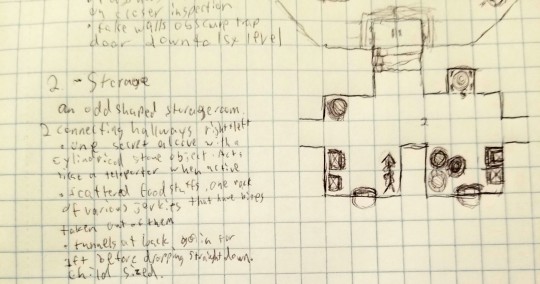 on closer inspection
• fake walls obscure trap
door down to 1sx level
2 - Storage
an odd shaped storage room.
2 connecting hallways right+left
• one secret alcove with a
cylindrical stone object. Acts
like a teleporter when active
• scattered foodstuffs, one rack
of various jerkies that have bites
taken out of them
• tunnels at back go in for
1ft before dropping straight down.
child sized.
2
S